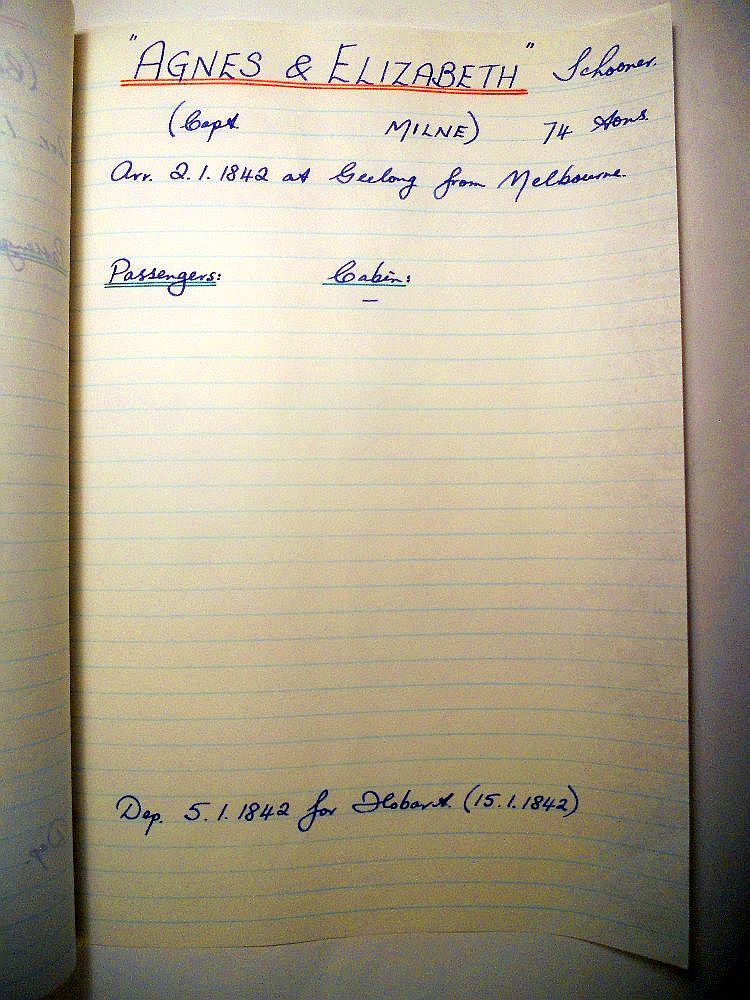 "AGNES & ELIZABETH" Schooner.
(Capt. MILNE) 74 tons.
Arr. 2.1.1842 at Geelong from Melbourne.
Passengers: Cabin:
—
Dep. 5.1.1842 for Hobart. (15.1.1842)